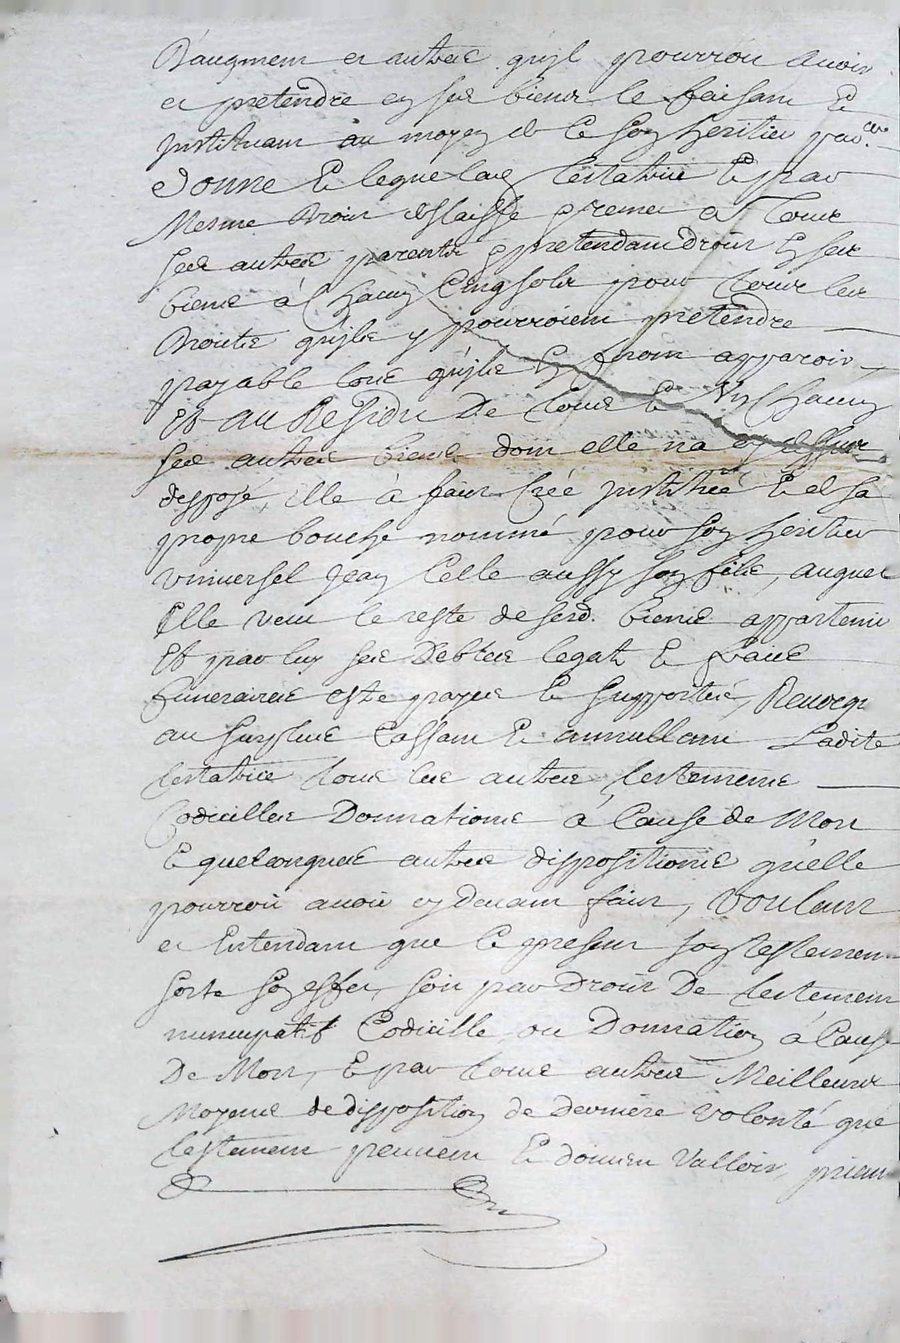 D'augment et autres quil pourroit avoir
et pretendre en ses biens le faisant et
jnstituant au moyen de ce son heritier par.re
Donne et legue lad testatrice et par
Mesme droit delaisse a tous
ses autres parents pretendant droit en ses
biens à chacun cinq sols pour tous les
droits quils y pourroient pretendre
payable lors quils en feront apparoir
Et au Residu De tous et Un Chacun
ses autres biens dont elle na cy dessus
disposé, Elle à fait créé jnstitué et de sa
propre bouche nommé pour son heritier
vniversel jean Celle aussy son fils, auquel
Elle veut le reste de sesd. biens appartenir
Et par luy ses Debtes legats et fraits
funeraires estre payes et supportés, Revoqt
au surplus Cassant et annullant Ladite
testatrice tous les autres testements
Codicilles Donnations à Cause de Mort
Et quelconques autres dispositions qu'elle
pourroit avoir cy devant fait, Voulant
et Entendant que le present son testement
sorte son effet, soit par Droit De testement
nuncupatif Codicille, ou Donnation à Cause
De Mort, Et par tous autres Meilleurs
Moyens de disposition de derniere volonté que
testament peuvent et doivent Valloir, priant